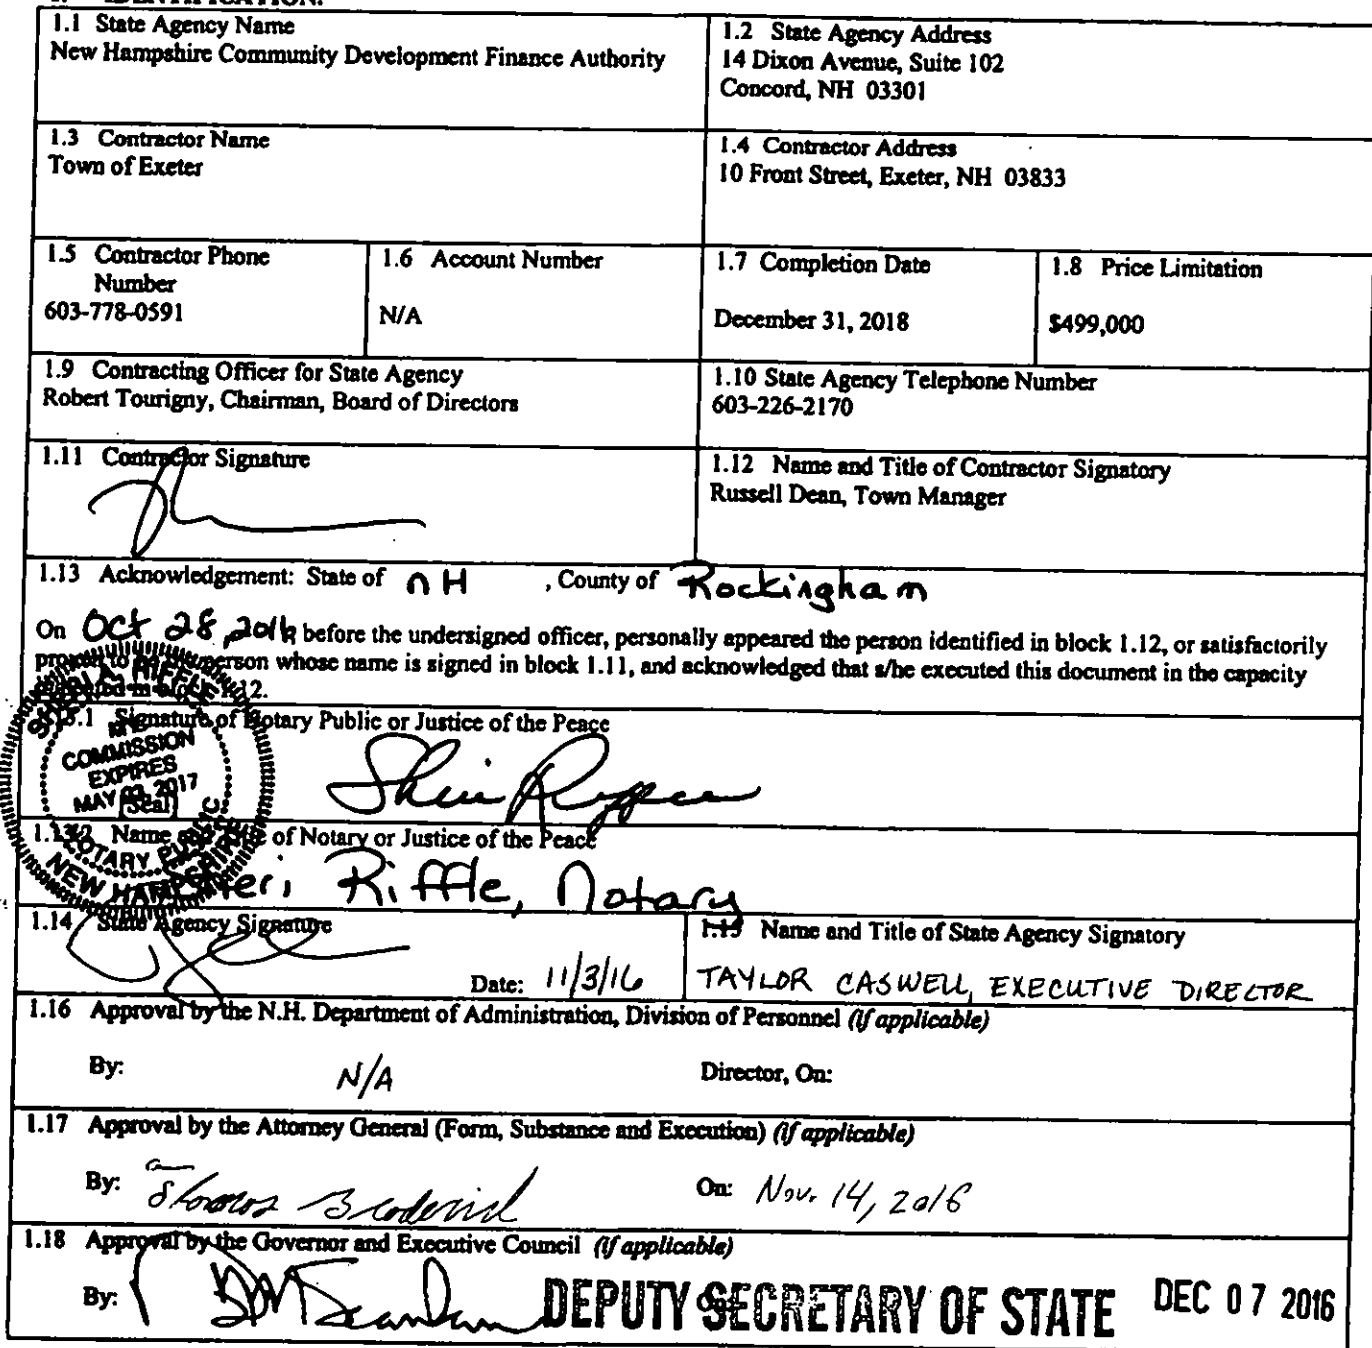 1. IDENTIFICATION.
1.1 State Agency Name
New Hampshire Community Development Finance Authority
1.2 State Agency Address
14 Dixon Avenue, Suite 102
Concord, NH 03301
1.3 Contractor Name
Town of Exeter
1.4 Contractor Address
10 Front Street, Exeter, NH 03833
1.5 Contractor Phone
Number
603-778-0591
1.6 Account Number
N/A
1.7 Completion Date
December 31, 2018
1.8 Price Limitation
$499,000
1.9 Contracting Officer for State Agency
Robert Tourigny, Chairman, Board of Directors
1.10 State Agency Telephone Number
603-226-2170
1.11 Contractor Signature
1.12 Name and Title of Contractor Signatory
Russell Dean, Town Manager
1.13 Acknowledgement: State of NH , County of Rockingham
On Oct 28, 2016 before the undersigned officer, personally appeared the person identified in block 1.12, or satisfactorily
proven to be the person whose name is signed in block 1.11, and acknowledged that s/he executed this document in the capacity
indicated in block 1.12.
1.13.1 Signature of Notary Public or Justice of the Peace
COMMISSION
EXPIRES
MAY 03, 2017
[Seal]
NOTARY PUBLIC
NEW HAMPSHIRE
1.13.2 Name and Title of Notary or Justice of the Peace
Sheri Riffle, Notary
1.14 State Agency Signature
Date: 11/3/16
1.15 Name and Title of State Agency Signatory
TAYLOR CASWELL, EXECUTIVE DIRECTOR
1.16 Approval by the N.H. Department of Administration, Division of Personnel (if applicable)
By: N/A Director, On:
1.17 Approval by the Attorney General (Form, Substance and Execution) (if applicable)
By: On: Nov. 14, 2016
1.18 Approval by the Governor and Executive Council (if applicable)
By: DEPUTY SECRETARY OF STATE DEC 07 2016